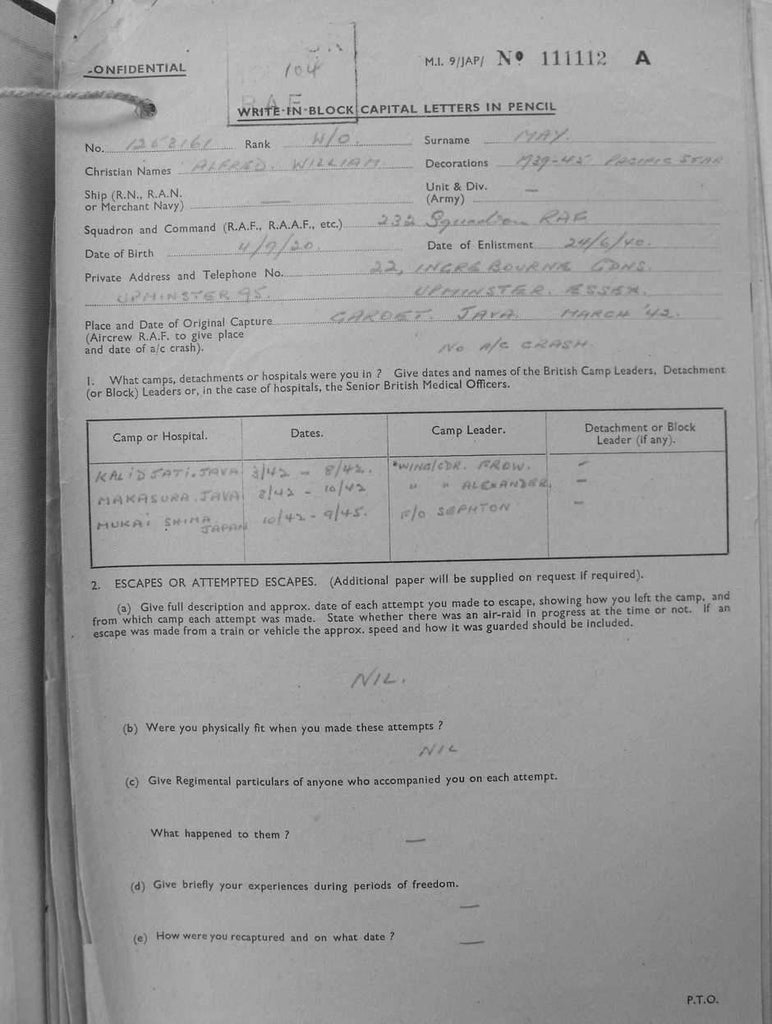 CONFIDENTIAL
104
M.I. 9/JAP/ Nº 111112 A
WRITE IN BLOCK CAPITAL LETTERS IN PENCIL
No. 1268161 Rank W/O. Surname MAY.
Christian Names ALFRED. WILLIAM Decorations 1939-45 PACIFIC STAR
Ship (R.N., R.A.N. or Merchant Navy) — Unit & Div. (Army) —
Squadron and Command (R.A.F., R.A.A.F., etc.) 232 Squadron RAF
Date of Birth 4/9/20. Date of Enlistment 24/6/40.
Private Address and Telephone No. 22, INGREBOURNE GDNS.
UPMINSTER 95. UPMINSTER. ESSEX.
Place and Date of Original Capture GAROET. JAVA. MARCH '42.
(Aircrew R.A.F. to give place
and date of a/c crash). NO A/C CRASH.
1. What camps, detachments or hospitals were you in ? Give dates and names of the British Camp Leaders, Detachment
(or Block) Leaders or, in the case of hospitals, the Senior British Medical Officers.
Camp or Hospital. Dates. Camp Leader. Detachment or Block Leader (if any).
KALIDJATI. JAVA 3/42 - 8/42. WING/CDR. FROW. -
MAKASURA. JAVA 8/42 - 10/42 " " ALEXANDER -
MUKAI SHIMA JAPAN 10/42 - 9/45. F/O SEPHTON -
2. ESCAPES OR ATTEMPTED ESCAPES. (Additional paper will be supplied on request if required).
(a) Give full description and approx. date of each attempt you made to escape, showing how you left the camp, and
from which camp each attempt was made. State whether there was an air-raid in progress at the time or not. If an
escape was made from a train or vehicle the approx. speed and how it was guarded should be included.
NIL.
(b) Were you physically fit when you made these attempts ?
NIL
(c) Give Regimental particulars of anyone who accompanied you on each attempt.
What happened to them ? —
(d) Give briefly your experiences during periods of freedom.
—
(e) How were you recaptured and on what date ? —
P.T.O.